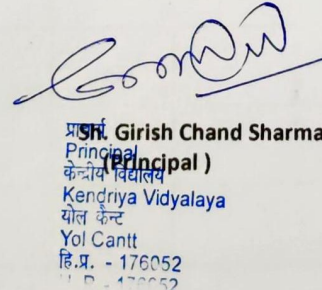 प्राचार्य
Sh. Girish Chand Sharma
Principal
(Principal )
केन्द्रीय विद्यालय
Kendriya Vidyalaya
योल कैन्ट
Yol Cantt
हि.प्र. - 176052
H.P. - 176052